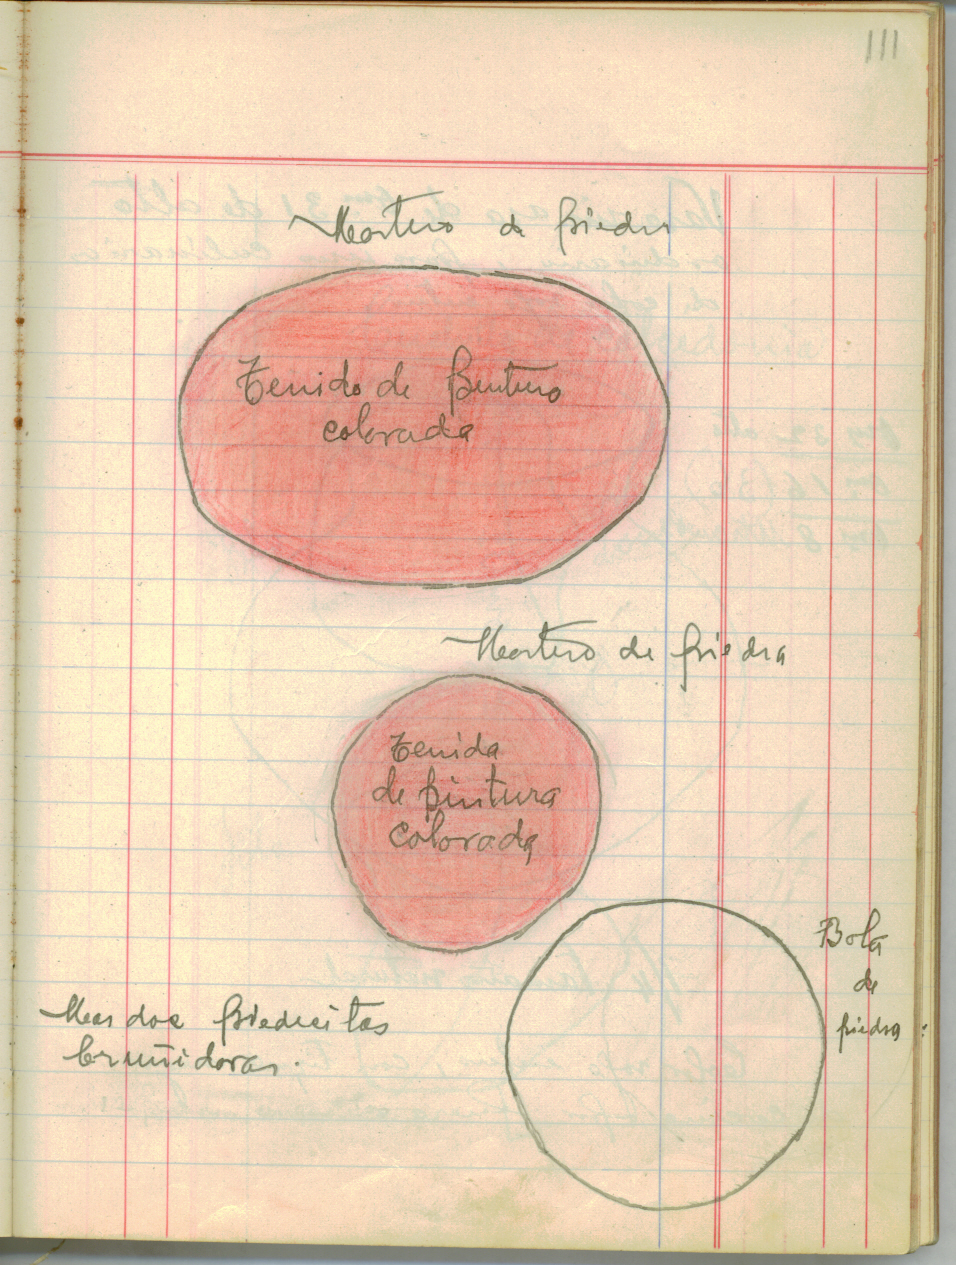 111
Mortero de piedra
Teñido de pintura
colorada
Mortero de piedra
Tenida
de pintura
colorada
Bola
de
piedra:
Mas dos piedrecitas
bruñidoras.